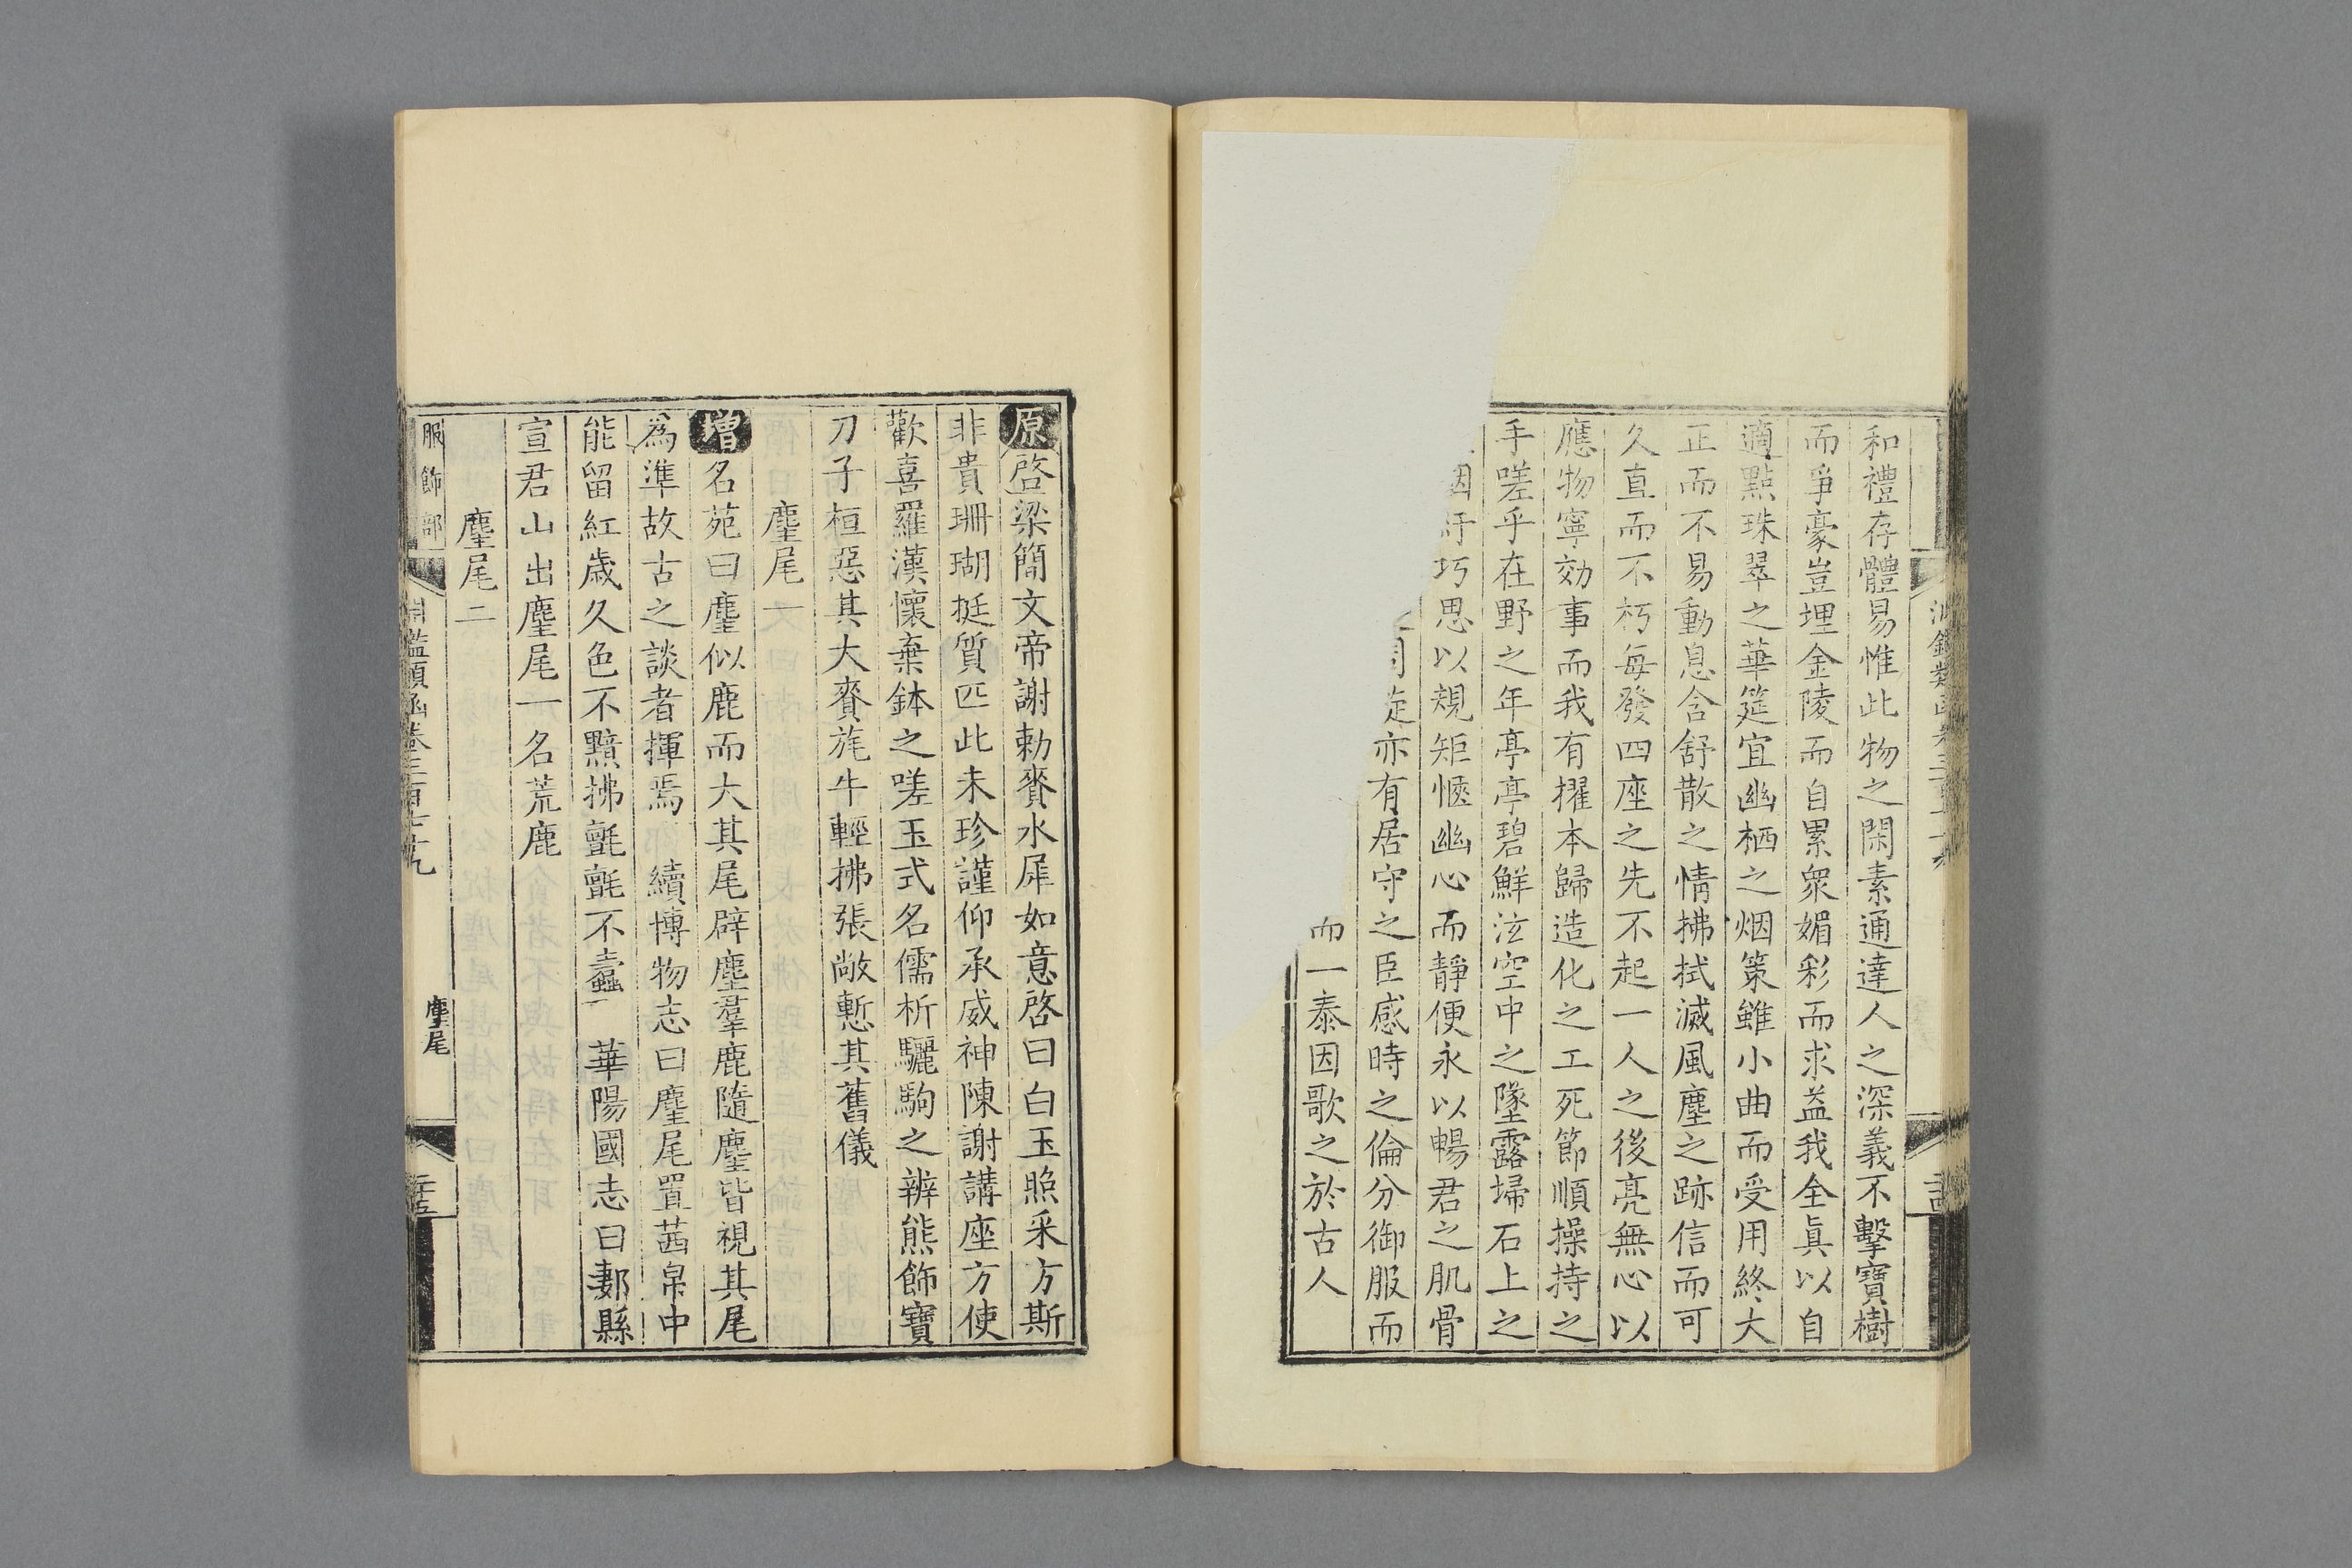 和禮存體易惟此物之閑素通達人之深義不擊寶樹
而爭豪豈埋金陵而自累衆媚彩而求益我全眞以自
適點珠翠之華筵宜幽栖之烟策雖小曲而受用終大
正而不易動息含舒散之情拂拭滅風塵之跡信而可
久直而不朽每發四座之先不起一人之後亮無心以
應物寧効事而我有擢本歸造化之工死節順操持之
手嗟乎在野之年亭亭碧鮮泫空中之墜露掃石上之
巧思以規矩愜幽心而靜便永以暢君之肌骨
亦有居守之臣感時之倫分御服而
而一泰因歌之於古人
原啓梁簡文帝謝勅賚水犀如意啓曰白玉照采方斯
非貴珊瑚挺質匹此未珍謹仰承威神陳謝講座方使
歡喜羅漢懷棄鉢之嗟玉式名儒析驪駒之辨熊飾寶
刀子桓惡其大賚旄牛輕拂張敞慙其舊儀
麈尾一
增名苑曰麈似鹿而大其尾辟塵羣鹿隨麈皆視其尾
爲準故古之談者揮焉 續博物志曰麈尾置茜帛中
能留紅歲久色不黯拂氈氈不蠹 華陽國志曰郪縣
宣君山出麈尾一名荒鹿
麈尾二
服飾部 麈尾